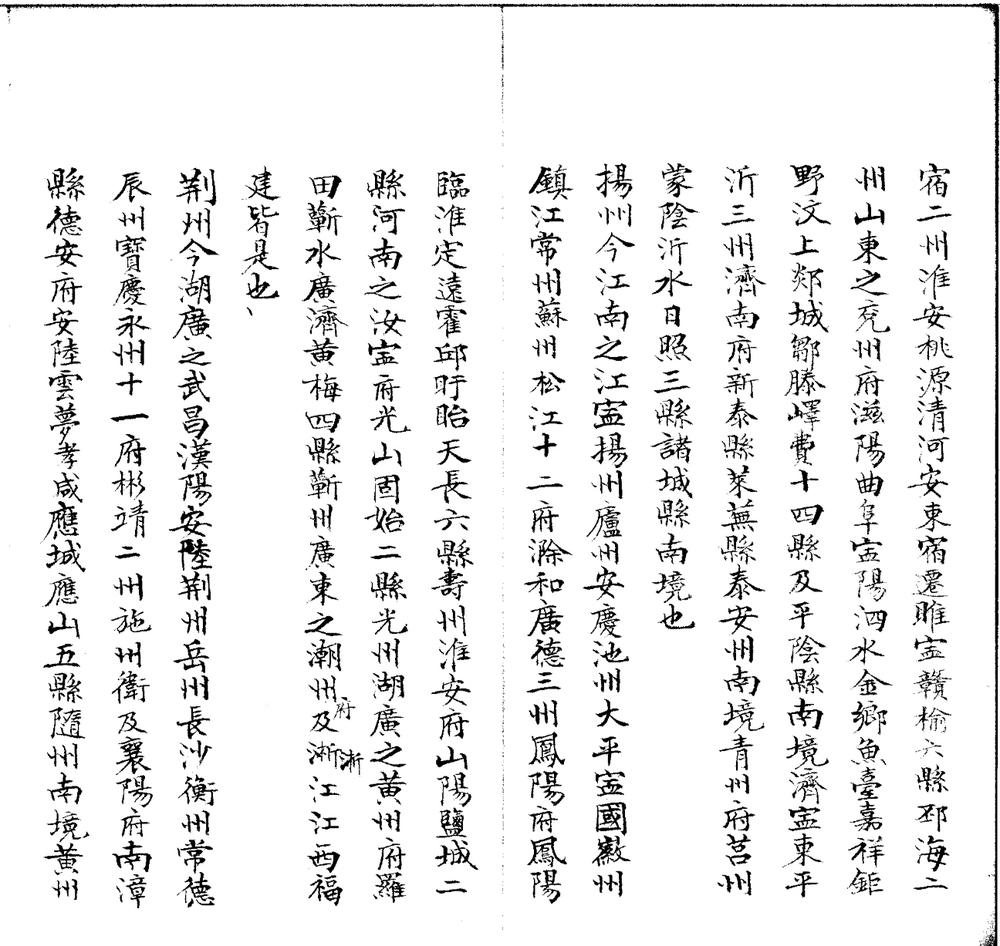 宿二州淮安桃源清河安東宿遷睢寍贛榆六縣邳海二
州山東之兖州府滋陽曲阜寍陽泗水金鄉魚臺嘉祥鉅
野汶上郯城鄒滕嶧費十四縣及平陰縣南境濟寍東平
沂三州濟南府新泰縣萊蕪縣泰安州南境青州府莒州
蒙陰沂水日照三縣諸城縣南境也
揚州今江南之江寍揚州廬州安慶池州大平寍國徽州
鎮江常州蘇州松江十二府滁和廣德三州鳳陽府鳳陽
臨淮定遠霍邱盱眙天長六縣壽州淮安府山陽鹽城二
縣河南之汝寍府光山固始二縣光州湖廣之黃州府羅
田蘄水廣濟黃梅四縣蘄州廣東之潮州府及淅浙江江西福
建皆是也
荆州今湖廣之武昌漢陽安陸荆州岳州長沙衡州常德
辰州寶慶永州十一府彬靖二州施州衛及襄陽府南漳
縣德安府安陸雲夢孝咸應城應山五縣隨州南境黃州